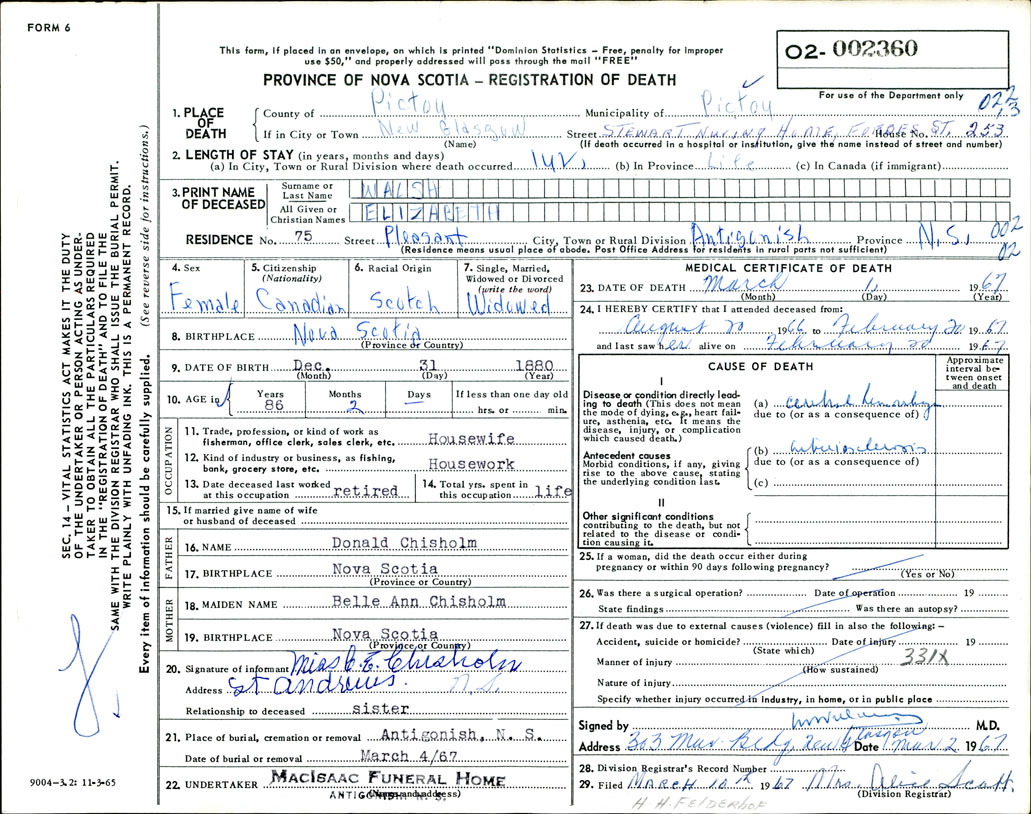 FORM 6
This form, if placed in an envelope, on which is printed "Dominion Statistics – Free, penalty for improper
use $50," and properly addressed will pass through the mail "FREE"
O2- 002360
PROVINCE OF NOVA SCOTIA – REGISTRATION OF DEATH
For use of the Department only
1. PLACE OF DEATH
County of Pictou Municipality of Pictou
If in City or Town New Glasgow Street STEWART NURING HOME, FORBES ST. House No. 253
(Name) (If death occurred in a hospital or institution, give the name instead of street and number)
2. LENGTH OF STAY (in years, months and days)
(a) In City, Town or Rural Division where death occurred 1 yr. (b) In Province Life (c) In Canada (if immigrant)
3. PRINT NAME OF DECEASED
Surname or Last Name WALSH
All Given or Christian Names ELIZABETH
RESIDENCE No. 75 Street Pleasant City, Town or Rural Division Antigonish Province N.S. 002
02
(Residence means usual place of abode. Post Office Address for residents in rural parts not sufficient)
4. Sex Female
5. Citizenship (Nationality) Canadian
6. Racial Origin Scotch
7. Single, Married, Widowed or Divorced (write the word) Widowed
8. BIRTHPLACE Nova Scotia
(Province or Country)
9. DATE OF BIRTH Dec. 31 1880
(Month) (Day) (Year)
10. AGE in Years 86 Months 2 Days If less than one day old hrs. or min.
OCCUPATION
11. Trade, profession, or kind of work as fisherman, office clerk, sales clerk, etc. Housewife
12. Kind of industry or business, as fishing, bank, grocery store, etc. Housework
13. Date deceased last worked at this occupation retired
14. Total yrs. spent in this occupation life
15. If married give name of wife or husband of deceased
FATHER
16. NAME Donald Chisholm
17. BIRTHPLACE Nova Scotia
(Province or Country)
MOTHER
18. MAIDEN NAME Belle Ann Chisholm
19. BIRTHPLACE Nova Scotia
(Province or Country)
20. Signature of informant Miss C. E. Chisholm
Address St Andrews. N.S.
Relationship to deceased sister
21. Place of burial, cremation or removal Antigonish, N. S.
Date of burial or removal March 4/67
22. UNDERTAKER MACISAAC FUNERAL HOME
ANTIGONISH N. S.
(Name and address)
MEDICAL CERTIFICATE OF DEATH
23. DATE OF DEATH March 1, 1967
(Month) (Day) (Year)
24. I HEREBY CERTIFY that I attended deceased from:
August 20 1966 to February 20 1967
and last saw her alive on February 20 1967
CAUSE OF DEATH
Approximate interval between onset and death
I
Disease or condition directly leading to death (This does not mean the mode of dying, e.g., heart failure, asthenia, etc. It means the disease, injury, or complication which caused death.)
(a) cerebral hemorrhage
due to (or as a consequence of)
Antecedent causes
Morbid conditions, if any, giving rise to the above cause, stating the underlying condition last.
(b) arteriosclerosis
due to (or as a consequence of)
(c)
II
Other significant conditions
contributing to the death, but not related to the disease or condition causing it.
25. If a woman, did the death occur either during pregnancy or within 90 days following pregnancy?
(Yes or No)
26. Was there a surgical operation? Date of operation 19
State findings Was there an autopsy?
27. If death was due to external causes (violence) fill in also the following: –
Accident, suicide or homicide? Date of injury 19
(State which)
Manner of injury 331X
(How sustained)
Nature of injury
Specify whether injury occurred in industry, in home, or in public place
Signed by M.D.
Address 303 Mar. Bldg, New Glasgow Date Mar 2 1967
28. Division Registrar's Record Number
29. Filed MARCH 10th 1967 Mrs. Alice Scott
(Division Registrar)
H. H. FELDERHOF
SEC. 14 – VITAL STATISTICS ACT MAKES IT THE DUTY
OF THE UNDERTAKER OR PERSON ACTING AS UNDER-
TAKER TO OBTAIN ALL THE PARTICULARS REQUIRED
IN THE "REGISTRATION OF DEATH" AND TO FILE THE
SAME WITH THE DIVISION REGISTRAR WHO SHALL ISSUE THE BURIAL PERMIT.
WRITE PLAINLY WITH UNFADING INK. THIS IS A PERMANENT RECORD.
Every item of information should be carefully supplied. (See reverse side for instructions.)
9004–3.2: 11-3-65